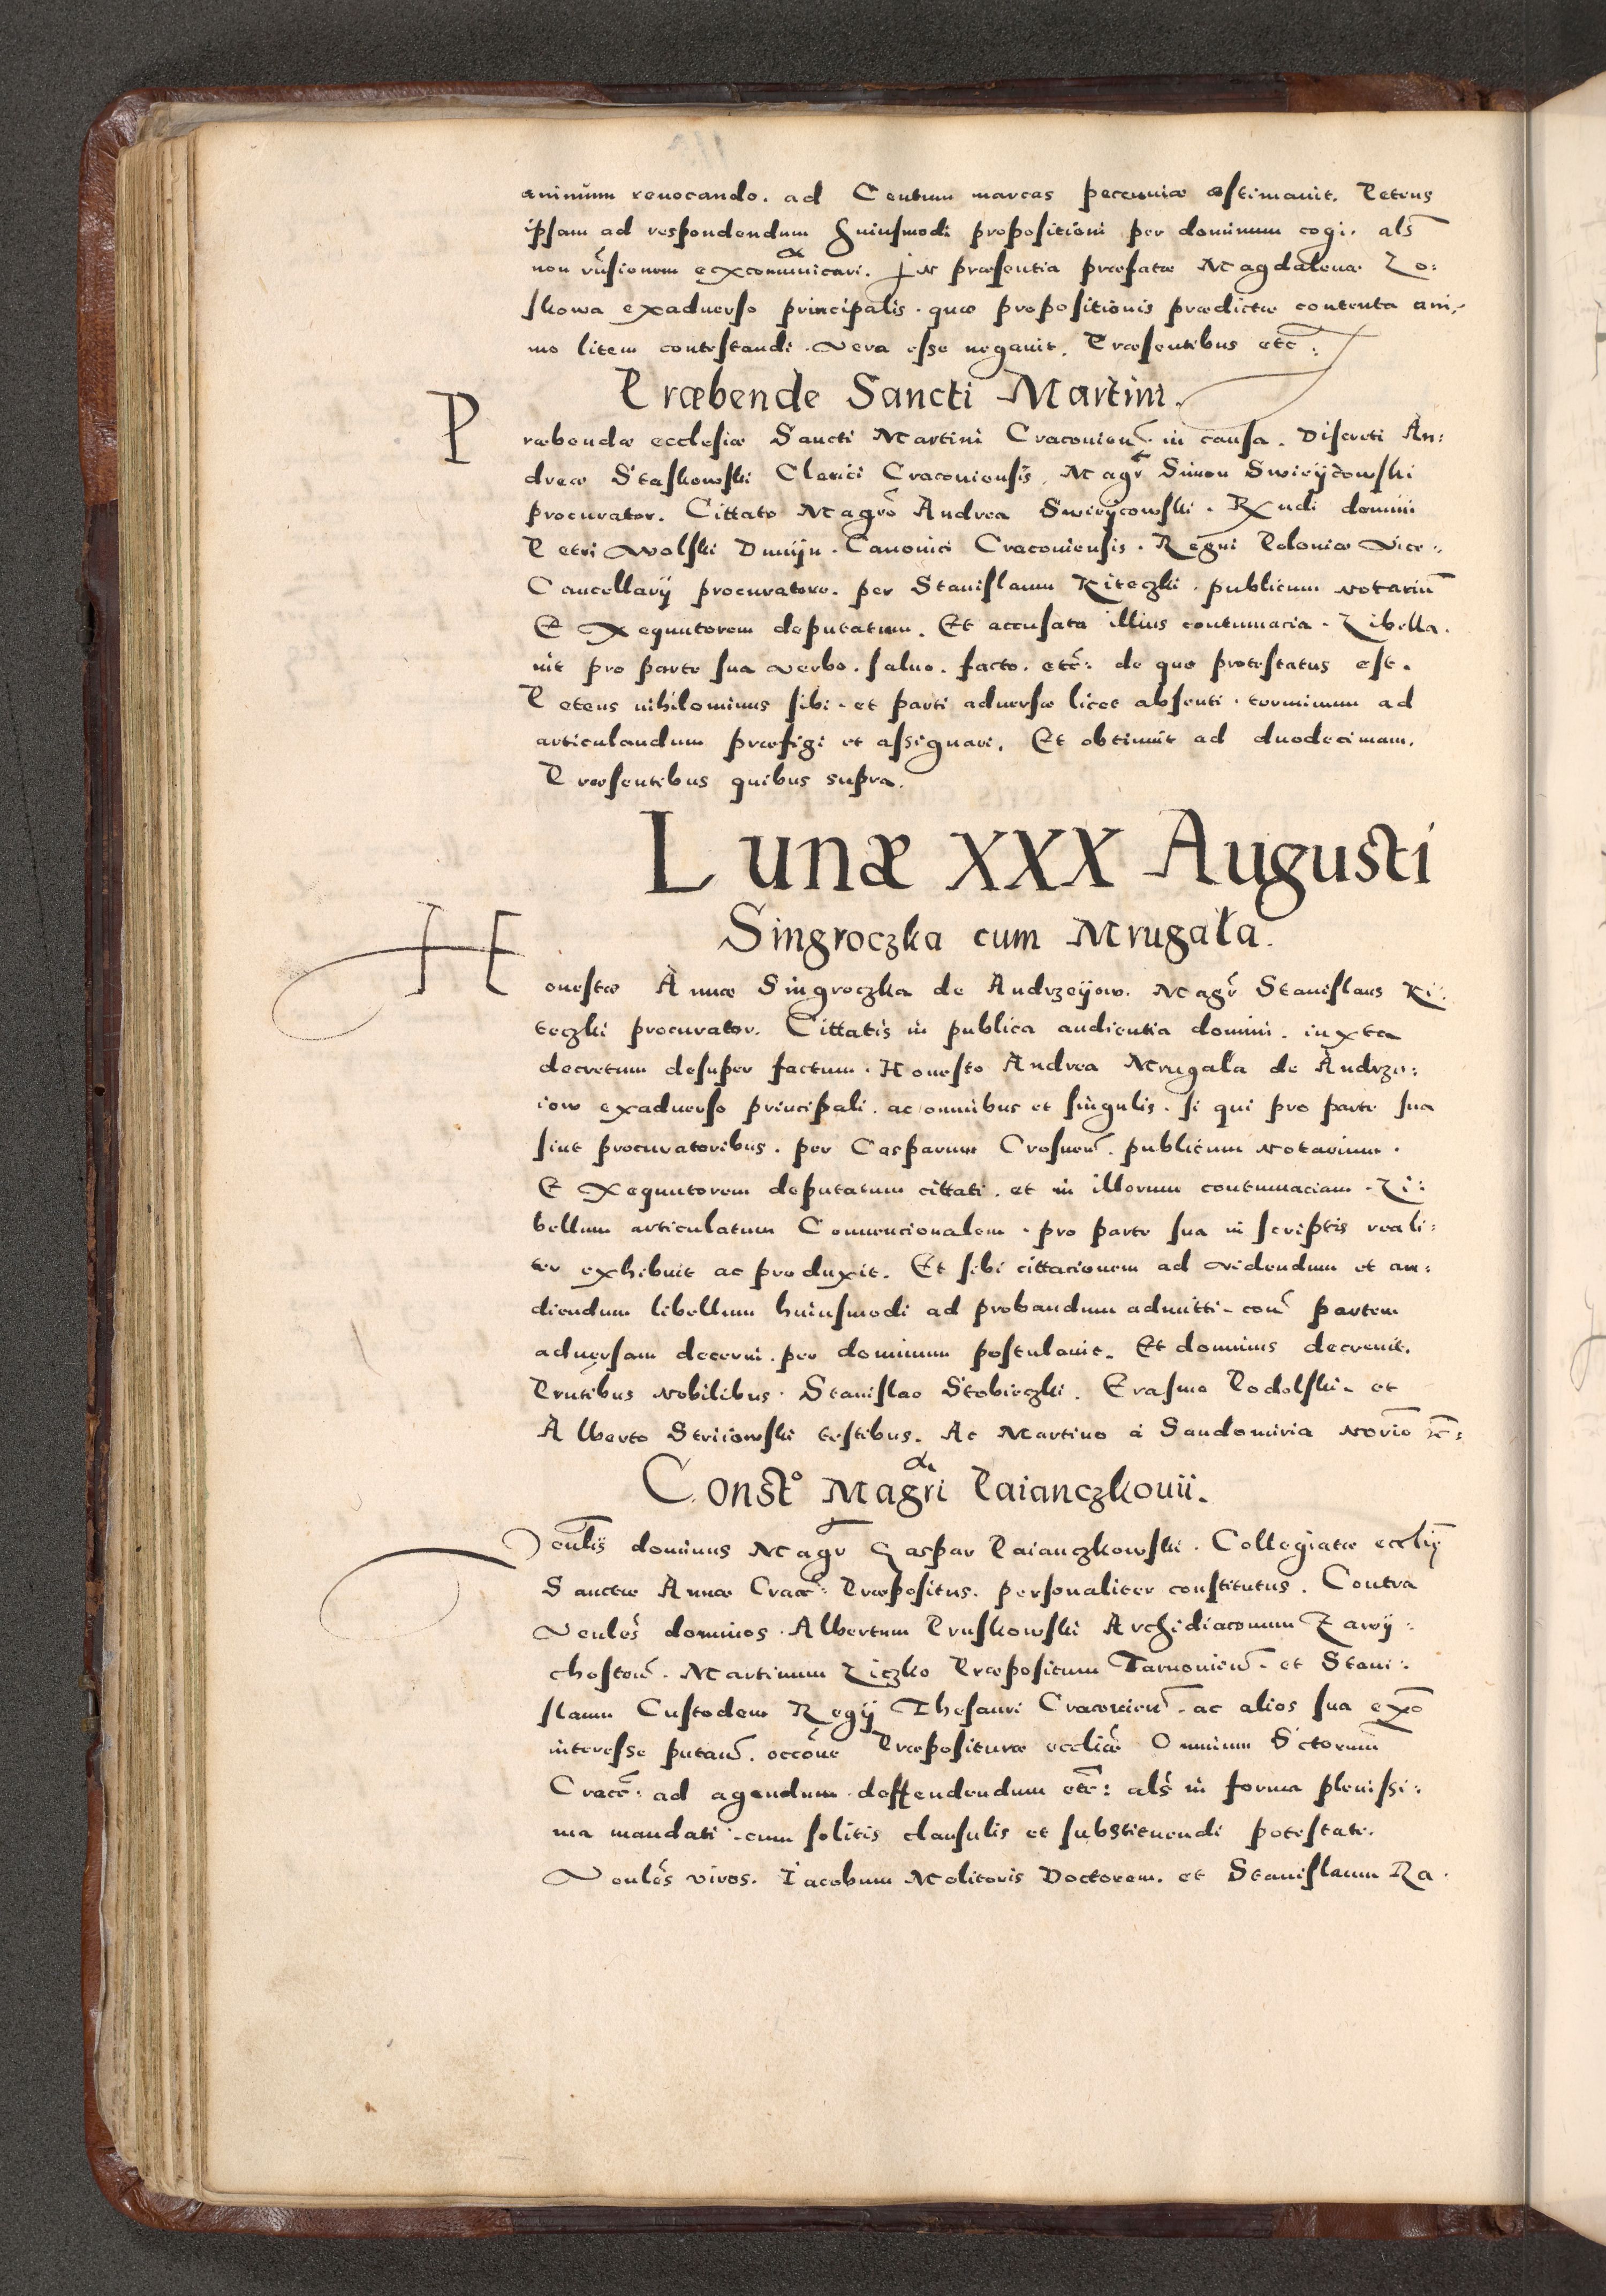 animum revocando. ad Centum marcas pecuniæ æstimavit. Petens
ipsam ad respondendum huiusmodi propositioni per dominum cogi. als̃
non excommunicari. In præsentia præfatæ Magdalenæ Zo:
skowa exadverso principalis. quæ propositionis prædictæ contenta ani-
mo litem contestandi. vera esse negavit. Præsentibus etc̃:
Præbende Sancti Martini.
Præbendæ ecclesiæ Sancti Martini Cracovien̄. in causa. Discreti An:
dreæ Staskowski Clerici Cracoviensis. Magr̃ Simon Swieycowski
procurator. Cittato Magrõ Andrea Swieycowski. Rx̃ndi domini
Petri Wolski Dunijn. Canonici Cracoviensis. Regni Poloniæ Vice:
Cancellarij procuratore. per Stanislaum Kiteczki. publicum notariũ
Exequutorem deputatum. Et accusata illius contumacia. Libella.
vit pro parte sua verbo. salvo. facto. etc̃: de quo protestatus est.
Petens nihilominus sibi. et parti adversæ licet absenti. terminum ad
articulandum præfigi et assignari. Et obtinuit ad duodecimam.
Præsentibus quibus supra.
Lunæ XXX Augusti
Singroczka cum Mrugała.
Honestæ Annæ Singroczka de Andrzeyow. Magr̃ Stanislaus Ki:
teczki procurator. Cittatis in publica audientia domini. iuxta
decretum desuper factum. Honesto Andrea Mrugała de Andrze:
iow exadverso principali. ac omnibus et singulis. si qui pro parte sua
sint procuratoribus. per Casparum Crosnen̄. publicum Notarium.
Exequutorem deputatum cittati. et in illorum contumaciam. Li:
bellum articulatum Convencionalem. pro parte sua in scriptis reali:
ter exhibuit ac produxit. Et sibi cittacionem ad videndum et au:
diendum libellum huiusmodi ad probandum admitti. con̄ partem
adversam decerni. per dominum postulavit. Et dominus decrevit.
Prntibus Nobilibus. Stanislao Stobieczki. Erasmo Podolski. et
Alberto Striiowski testibus. Ac Martino à Sandomiria Nõrio etc̃:
Const° Magri Paianczkovii.
Veñlis dominus Magr̃ Gaspar Paianczkowski. Collegiatæ ecclĩæ
Sanctæ Annæ Crac̃: Præpositus. personaliter constitutus. Contra
Venlẽs dominos. Albertum Pruskowski Archidiaconum Zawy:
chosten̄. Martinum Liczko Præpositum Tarnovien̄. et Stani:
slaum Custodem Regij Thesauri Cracovien̄. ac alios sua exõ
interesse putan̄. occõne Præpositure ecclĩæ Omnium Sctorum
Crac̃: ad agendum. deffendendum etc̃: als̃ in forma plenissi:
ma mandati. cum solitis clausulis et substituendi potestate.
Venlẽs viros. Iacobum Molitoris Doctorem. et Stanislaum Ra.